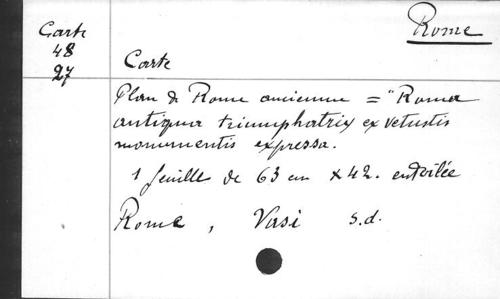 Rome
Carte
48
27
Carte
Plan de Rome ancienne = "Roma
antiqua triumphatrix ex vetustis
monumentis expressa.
1 feuille de 63 cm x 42. entoilée
Rome, Vasi s.d.